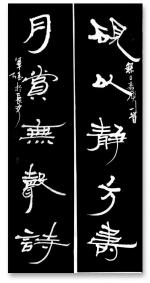 硯以靜方壽
月賞無聲詩